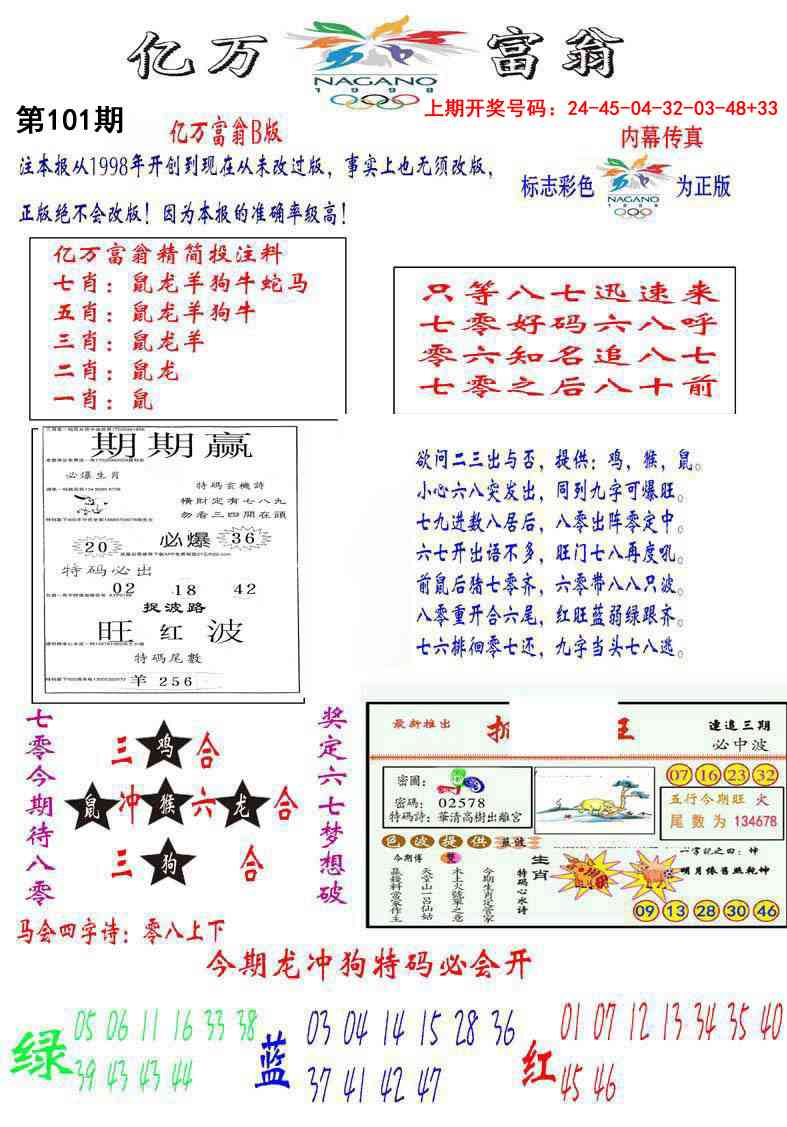 亿万 富翁
NAGANO
1998
第101期
亿万富翁B版
上期开奖号码：24-45-04-32-03-48+33
内幕传真
注本报从1998年开创到现在从未改过版，事实上也无须改版，
正版绝不会改版！因为本报的准确率级高！
标志彩色
NAGANO
1998
为正版
亿万富翁精简投注料
七肖：鼠龙羊狗牛蛇马
五肖：鼠龙羊狗牛
三肖：鼠龙羊
二肖：鼠龙
一肖：鼠
只等八七迅速来
七零好码六八呼
零六知名追八七
七零之后八十前
期期赢
必爆生肖
特码玄機詩
横財定有七八九
勿看三四開在頭
20
必爆
36
特码必出
02 18 42
捉波路
旺红波
特码尾數
羊 256
欲问二三出与否，提供：鸡，猴，鼠。
小心六八突发出，同列九字可爆旺。
七九进数八居后，八零出阵零定中。
六七开出语不多，旺门七八再度吼。
前鼠后猪七零齐，六零带八八只波。
八零重开合六尾，红旺蓝弱绿跟齐。
七六排徊零七还，九字当头七八逃。
七零今期待八零
三 鸡 合
鼠 冲 猴 六 龙 合
三 狗 合
奖定六七梦想破
最新推出
王
連追三期
必中波
密圖：
密码：02578
特码詩：華清高樹出離宮
07 16 23 32
五行今期旺 火
尾数为 134678
色波提供
今期傅
雙
天堂山一吕仙姑
木土火號單之意
今期生肖定管家
特码心水诗
生肖
一字記之曰：坤
明月依舊照乾坤
09 13 28 30 46
马会四字诗：零八上下
今期龙冲狗特码必会开
绿
05 06 11 16 33 38
39 43 43 44
蓝
03 04 14 15 28 36
37 41 42 47
红
01 07 12 13 34 35 40
45 46